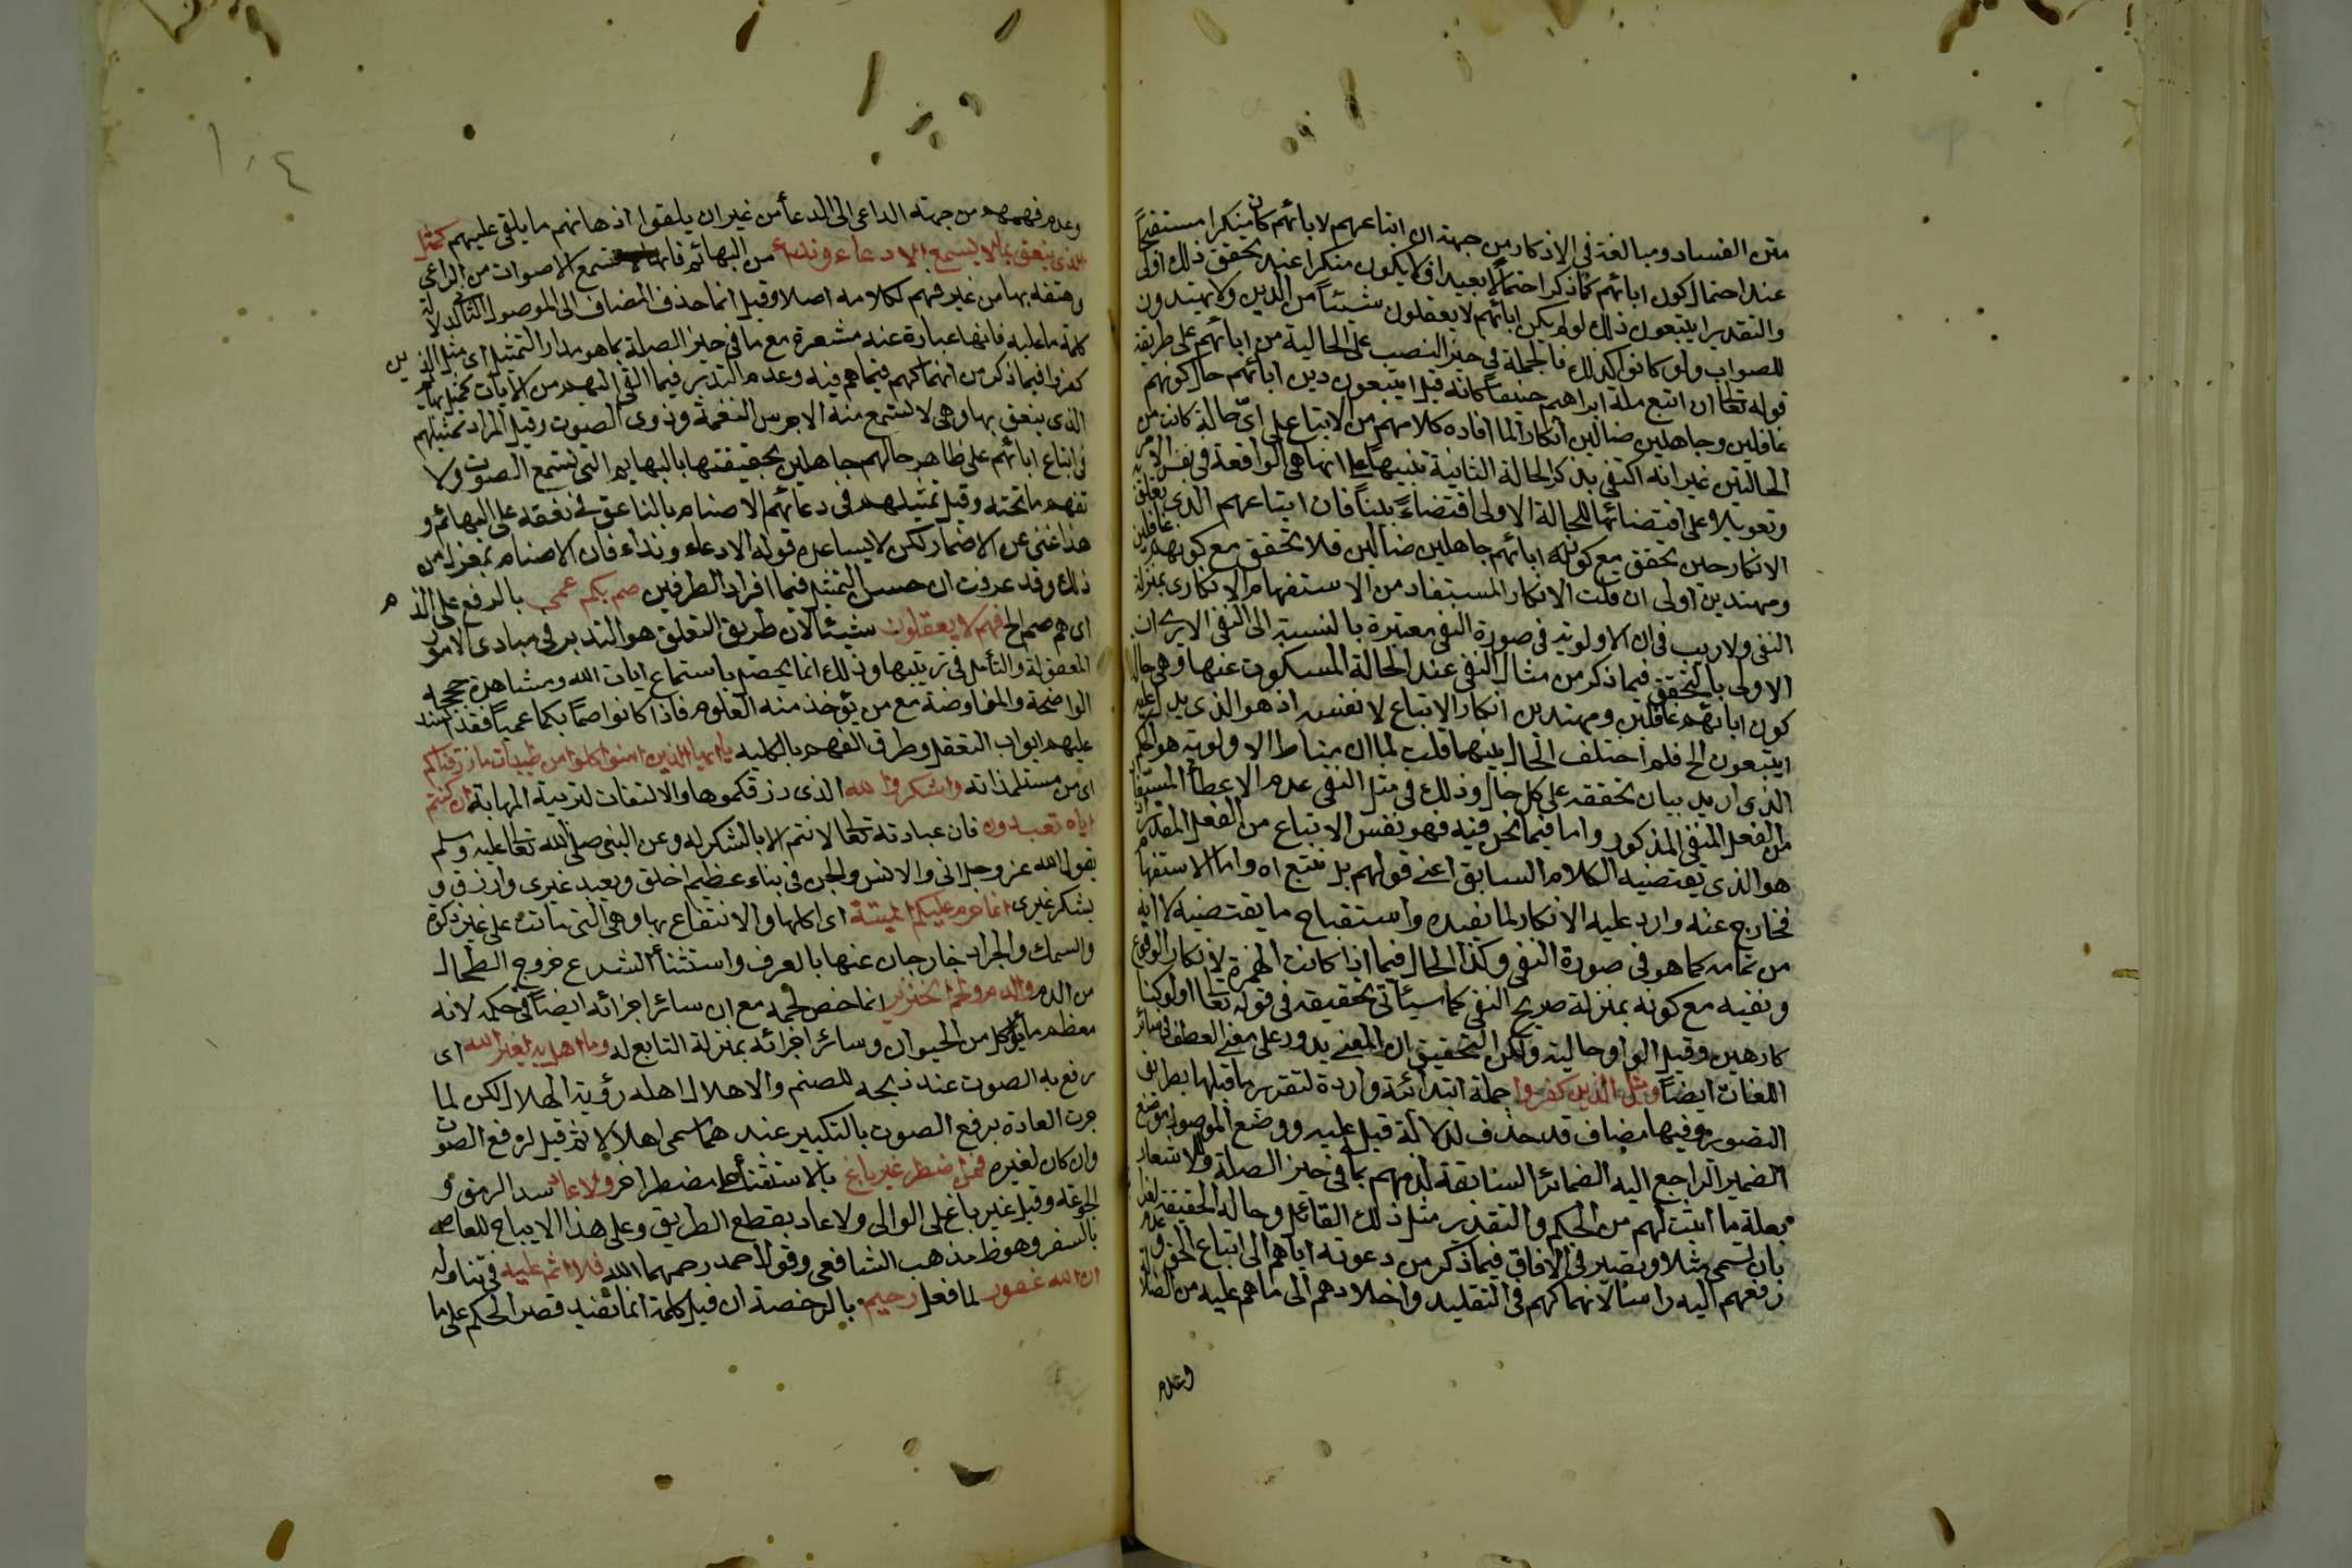 متن الفساد ومبالغة في الانكار من جهة ان اتباعهم لابائهم كان منكرا مستقبحا
عند احتمال كون ابائهم كما ذكر احتمالا بعيدا فلا يكون منكرا عند تحقق ذلك اولى
والتقدير ايتبعون ذلك لو لم يكن ابائهم لا يعقلون شيئا من الدين ولا يهتدون
للصواب ولو كانوا كذلك فالجملة في حيز النصب على الحالية من ابائهم على طريقة
قوله تعالى ان اتبع ملة ابراهيم حنيفا كانه قيل ايتبعون دين ابائهم حال كونهم
غافلين وجاهلين ضالين انكارا لما افاده كلامهم من الاتباع على اي حالة كانت من
الحالتين غير انه اكتفى بذكر الحالة الثانية تنبيها على انها هي الواقعة في نفس الامر
وتعويلا على اقتضائها للحالة الاولى اقتضاء بينا فان اتباعهم الذي تعلق به
الانكار حين تحقق مع كون ابائهم جاهلين ضالين فلا يتحقق مع كونهم عاقلين
ومهتدين اولى ان قلت الانكار المستفاد من الاستفهام الانكاري بمنزلة
النفي ولا ريب في ان الاولوية في صورة النفي معتبرة بالنسبة الى النفي الا يرى ان
الاولى بالتحقق فيما ذكر من مثال النفي عند الحالة المسكوت عنها وهي حال
كون ابائهم عاقلين ومهتدين انكار الاتباع لا نفسه اذ هو الذي يدل عليه
ايتبعون الخ فلم اختلف الحال بينهما قلت لما ان مناط الاولوية هو الحكم
الذي اريد بيان تحققه على كل حال وذلك في مثل النفي عدم الاعطاء المستفاد
من الفعل المنفي المذكور واما فيما نحن فيه فهو نفس الاتباع من الفعل المقدر اذ
هو الذي يقتضيه الكلام السابق اعني قولهم بل نتبع اه واما الاستفهام
فخارج عنه وارد عليه الانكار لما نفيده واستقباح ما يقتضيه لا انه
من تمامه كما هو في صورة النفي وكذا الحال فيما اذا كانت الهمزة لانكار الوقوع
ونفيه مع كونه بمنزلة صريح النفي كما سيأتي تحقيقه في قوله تعالى اولو كنا
كارهين وقيل الواو حالية ولكن التحقيق ان المعنى يدور على معنى العطف في سائر
اللغات ايضا ومثل الذين كفروا جملة ابتدائية واردة لتقرير ما قبلها بطريق
التصوير وفيها مضاف قد حذف لدلالة قبل عليه ووضع الموصول موضع
الضمير الراجع اليه الضمائر السابقة لذمهم بما في حيز الصلة وللاشعار
بعلة ما اثبت لهم من الحكم والتقدير مثل ذلك القائل وحاله الحقيقة لغرابتها
بان تسمى مثلا وتصير في الافاق فيما ذكر من دعوته اياهم الى اتباع الحق وعدم
رفعهم اليه راسا لانهماكهم في التقليد واخلادهم الى ما هم عليه من الضلالة
وعدم
١٠٤
وعدم فهمهم من جهة الداعي الى الدعاء من غير ان يلقوا اذهانهم ما يلقى عليهم كمثل
الذي ينعق بما لا يسمع الا دعاء ونداء من البهائم فانها لا تسمع الاصوات من الراعي
وهتفه بها من غير فهم لكلامه اصلا وقيل انما حذف المضاف الى الموصول الثاني لدلالة
كلمة ما عليه فانها عبارة عنه مشعرة مع ما في حيز الصلة بما هو مدار التمثيل اي مثل الذين
كفروا فيما ذكر من انهماكهم فيما هم فيه وعدم التدبر فيما القي اليهم من الايات كمثل بهائم
الذي ينعق بها وهي لا تسمع منه الا جرس النغمة ودوي الصوت وقيل المراد تمثيلهم
في اتباع ابائهم على ظاهر حالهم جاهلين بحقيقتها بالبهائم التي تسمع الصوت ولا
تفهم ما تحته وقيل تمثيلهم في دعائهم الاصنام بالناعق في نعقه على البهائم و
هذا غني عن الاضمار لكن لا يساعده قوله الا دعاء ونداء فان الاصنام بمعزل من
ذلك وقد عرفت ان حسن التمثيل فيما افراد الطرفين صم بكم عمي بالرفع على الذم
اي هم صم الخ فهم لا يعقلون شيئا لان طريق التعلق هو التدبر في مبادي الامور
المعقولة والتأمل في ترتيبها وذلك انما يحصل باستماع ايات الله ومشاهدة حججه
الواضحة والمفاوضة مع من يؤخذ منه العلوم فاذا كانوا صما بكما عميا فقد انسد
عليهم ابواب التعقل وطرق الفهم بالكليه يا ايها الذين امنوا كلوا من طيبات ما رزقناكم
اي من مستلذاته واشكروا لله الذي رزقكموها والالتفات لتربية المهابة ان كنتم
اياه تعبدون فان عبادته تعالى لا تتم الا بالشكر له وعن النبي صلى الله تعالى عليه وسلم
يقول الله عز وجل اني والانس والجن في بناء عظيم اخلق ويعبد غيري وارزق و
يشكر غيري انما حرم عليكم الميتة اي اكلها والانتفاع بها وهي التي ماتت على غير ذكوة
والسمك والجراد خارجان عنها بالعرف واستثناء الشرع خروج الطحال
من الدم والدم ولحم الخنزير انما خص لحمه مع ان سائر اجزائه ايضا في حكمه لانه
معظم ما يؤكل من الحيوان وسائر اجزائه بمنزلة التابع له وما اهل به لغير الله اي
رفع به الصوت عند ذبحه للصنم والاهلال اهله رؤية الهلال لكن لما
جرت العادة برفع الصوت بالتكبير عند هما سمي اهلالا ثم قيل لرفع الصوت
وان كان لغيره فمن اضطر غير باغ بالاستثناء على مضطر اخر ولا عاد سد الرمق و
الجوعة وقيل غير باغ على الوالي ولا عاد بقطع الطريق وعلى هذا الا يباح للعاصي
بالسفر وهو ظ مذهب الشافعي وقول احمد رحمهما الله فلا اثم عليه في تناوله
ان الله غفور لما فعل رحيم بالرخصة ان قيل كلمة انما تفيد قصر الحكم على ما